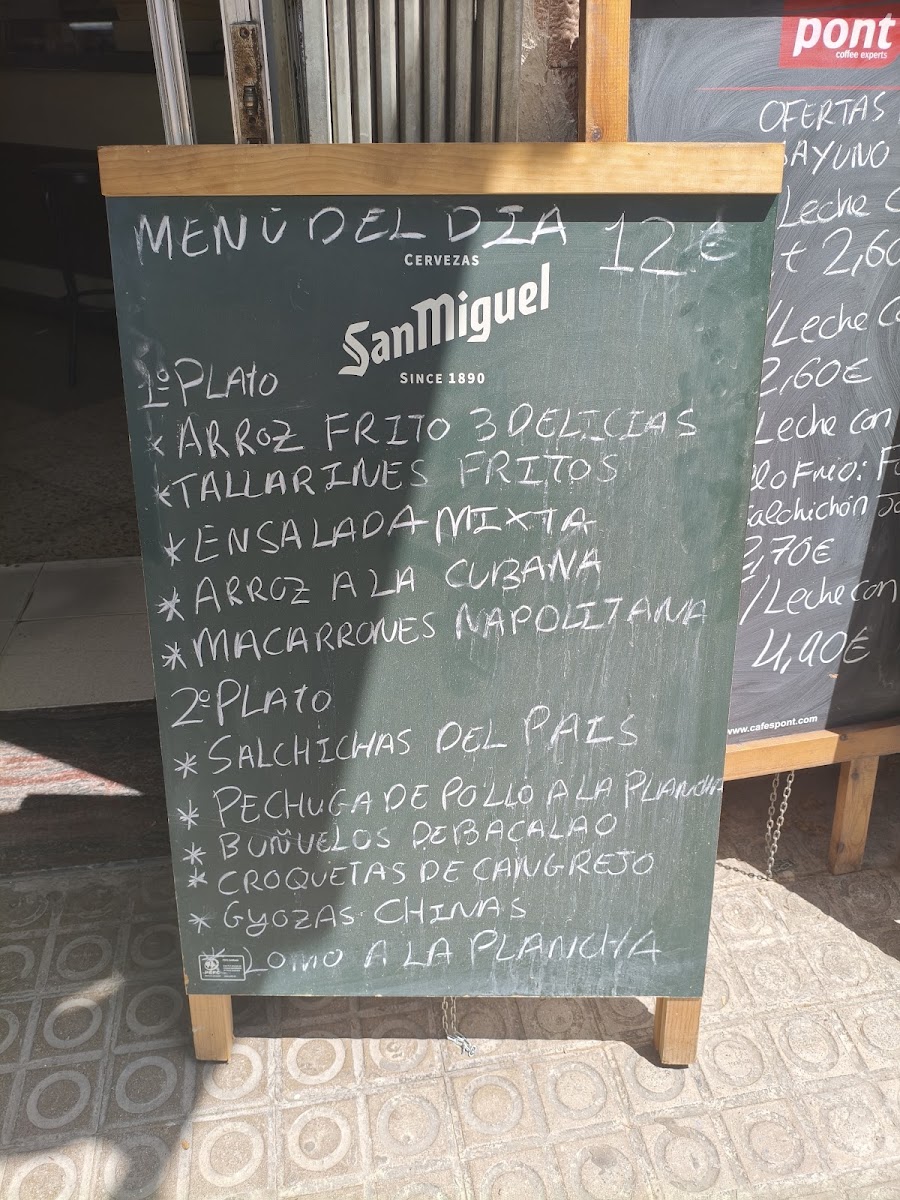 MENÚ DEL DIA 12€
CERVEZAS
SanMiguel
SINCE 1890
1º PLATO
* ARROZ FRITO 3 DELICIAS
* TALLARINES FRITOS
* ENSALADA MIXTA
* ARROZ A LA CUBANA
* MACARRONES NAPOLITANA
2º PLATO
* SALCHICHAS DEL PAIS
* PECHUGA DE POLLO A LA PLANCHA
* BUÑUELOS DE BACALAO
* CROQUETAS DE CANGREJO
* GYOZAS CHINAS
* LOMO A LA PLANCHA
pont
coffee experts
OFERTAS
AYUNO
Leche
2,60
Leche
2,60€
Leche con
Frio:
alchichón
2,70€
/Leche con
4,90€
www.cafespont.com